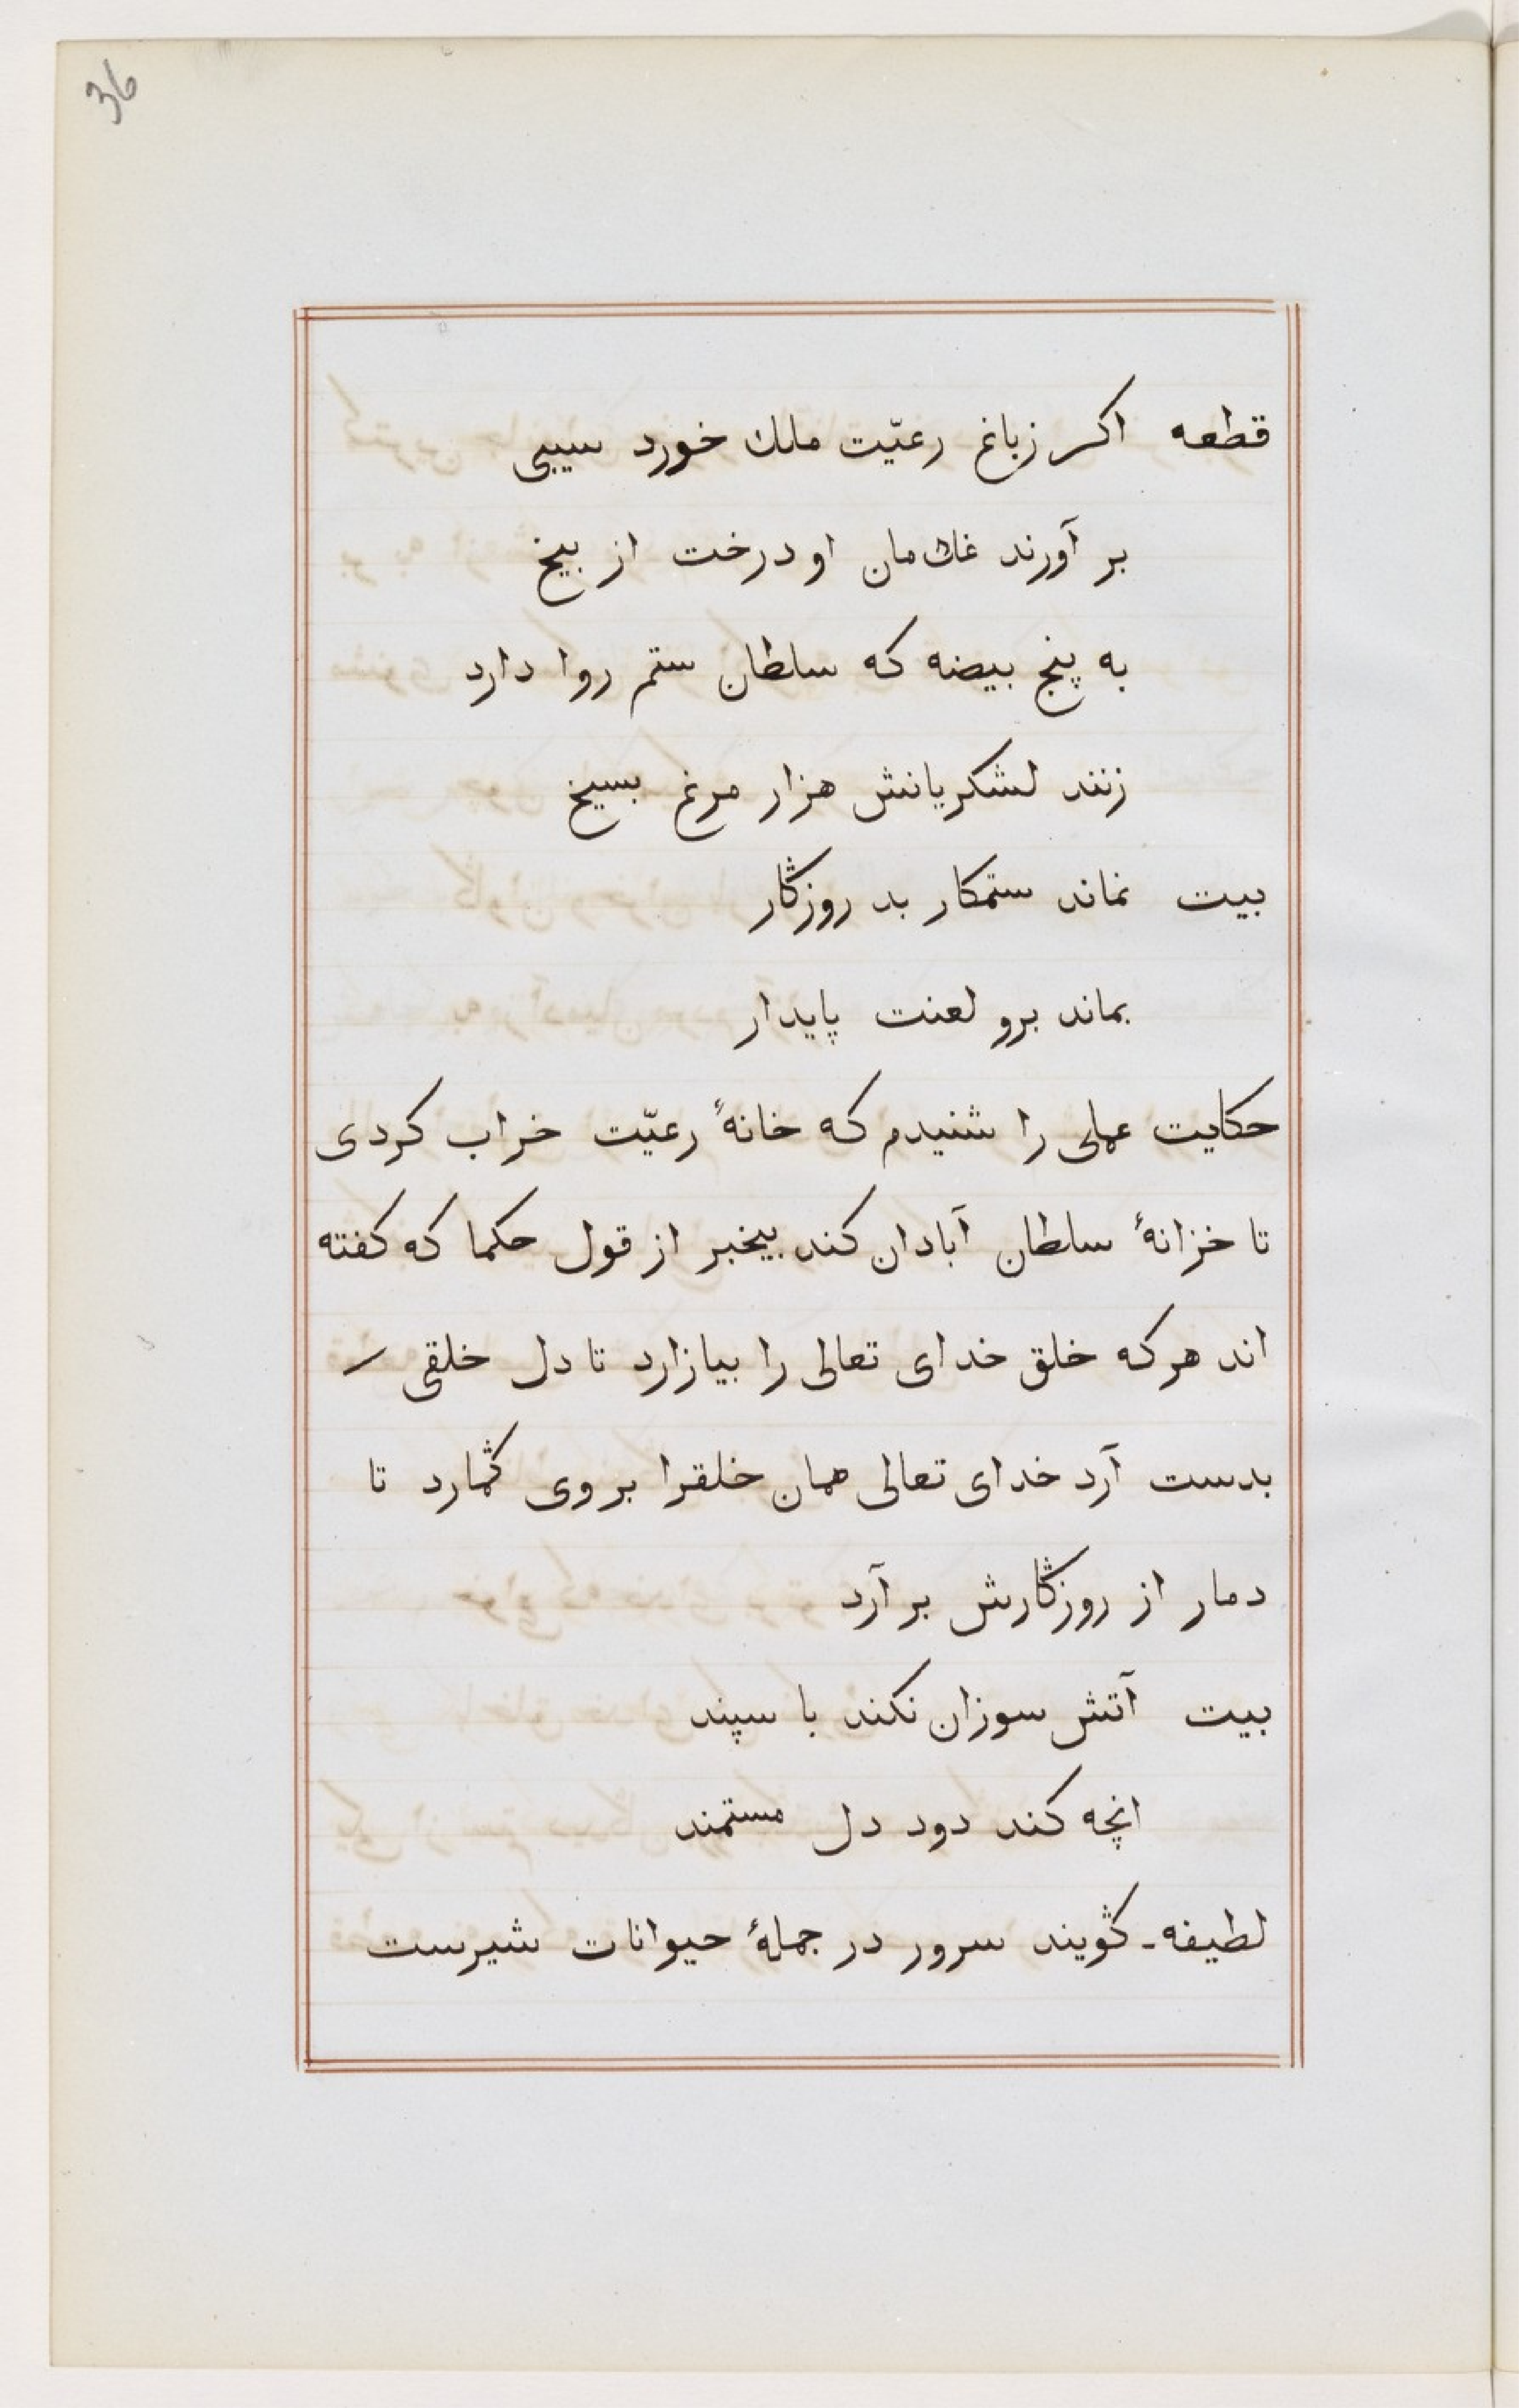 36
قطعه اکر زباغ رعیّت ملك خورد سیبی
بر آورند غلامان او درخت از بیخ
به پنج بیضه که سلطان ستم روا دارد
زنند لشکریانش هزار مرغ بسیخ
بیت نماند ستمکار بد روزگار
بماند برو لعنت پایدار
حکایت عملی را شنیدم که خانهٔ رعیّت خراب کردی
تا خزانهٔ سلطان آبادان کند بیخبر از قول حکما که کفته
اند هرکه خلق خدای تعالی را بیازارد تا دل خلقی
بدست آرد خدای تعالی همان خلقرا بروی گمارد تا
دمار از روزگارش بر آرد
بیت آتش سوزان نکند با سپند
انچه کند دود دل مستمند
لطیفه - گویند سرور در جملهٔ حیوانات شیرست